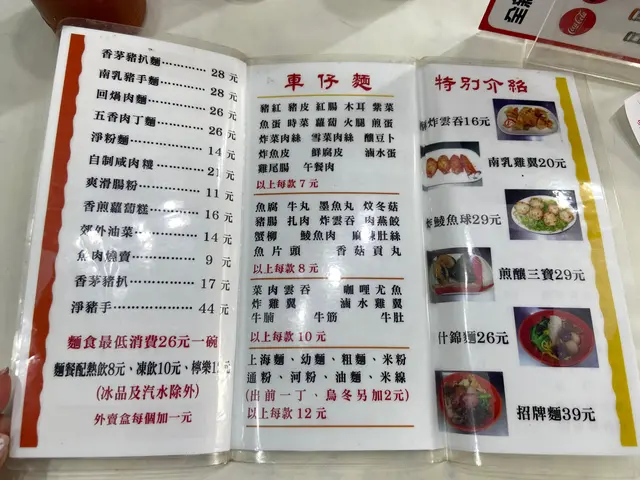 香茅豬扒麵............ 28元
南乳豬手麵............ 28元
回焫肉麵............ 26元
五香肉丁麵............ 26元
淨粉麵............ 14元
自制咸肉糭............ 21元
爽滑腸粉............ 11元
香煎蘿蔔糕............ 16元
郊外油菜............ 14元
魚肉燒賣............ 9元
香茅豬扒............ 17元
淨豬手............ 44元
麵食最低消費26元一碗
麵餐配熱飲8元、凍飲10元、檸樂12元
(冰品及汽水除外)
外賣盒每個加一元
車仔麵
豬紅 豬皮 紅腸 木耳 紫菜
魚蛋 時菜 蘿蔔 火腿 煎蛋
炸菜肉絲 雪菜肉絲 釀豆卜
炸魚皮 鮮腐皮 滷水蛋
雞尾腸 午餐肉
以上每款7元
魚腐 牛丸 墨魚丸 炆冬菇
豬腸 扎肉 炸雲吞 肉蒸餃
蟹柳 鯪魚肉 麻辣肚絲
魚片頭 香菇貢丸
以上每款8元
菜肉雲吞 咖喱尤魚
炸雞翼 滷水雞翼
牛腩 牛筋 牛肚
以上每款10元
上海麵、幼麵、粗麵、米粉
通粉、河粉、油麵、米線
(出前一丁、烏冬另加2元)
以上每款12元
特別介紹
炸雲吞16元
南乳雞翼20元
鯪魚球29元
煎釀三寶29元
什錦麵26元
招牌麵39元